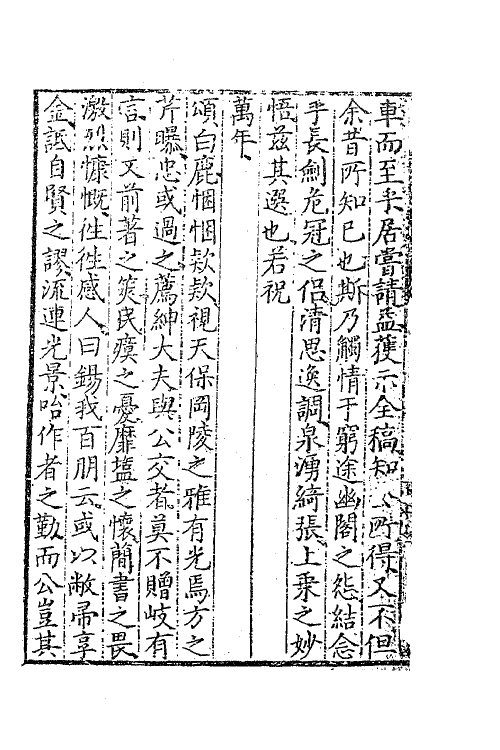 車而至乎居嘗請益獲示全稿知公所得又不但
余昔所知已也斯乃觸情于窮途幽閣之怨結念
乎長劍危冠之侶清思逸調泉湧綺張上乘之妙
悟茲其選也若祝
萬年
頌白鹿悃悃欵欵視天保岡陵之雅有光焉方之
芹曝忠或過之薦紳大夫與公交者莫不贈岐有
言則又前著之筴民瘼之憂靡盬之懷簡書之畏
激烈慷慨徃徃感人曰錫我百朋云或以敝帚享
金詆自賢之謬流連光景咍作者之勤而公豈其